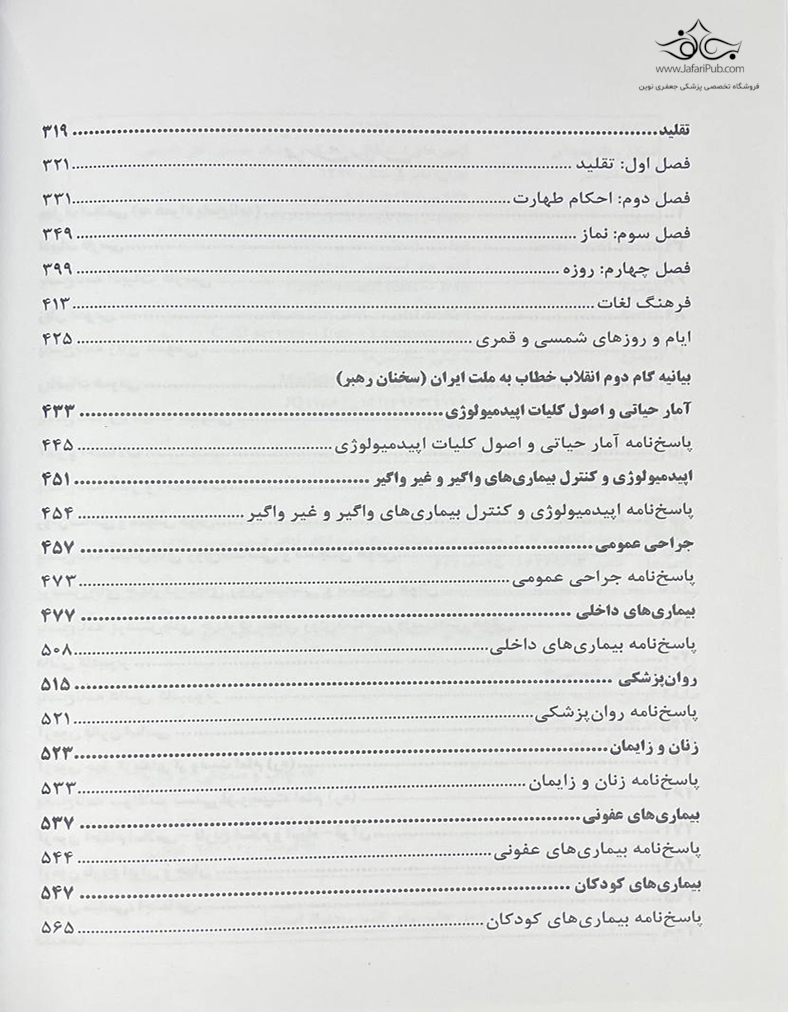 جعفری
www.JafariPub.com
فروشگاه تخصصی پزشکی جعفری نوین
تقلید ................ ۳۱۹
فصل اول: تقلید ................ ۳۲۱
فصل دوم: احکام طهارت ................ ۳۳۱
فصل سوم: نماز ................ ۳۴۹
فصل چهارم: روزه ................ ۳۹۹
فرهنگ لغات ................ ۴۱۳
ایام و روزهای شمسی و قمری ................ ۴۲۵
بیانیه گام دوم انقلاب خطاب به ملت ایران (سخنان رهبر)
آمار حیاتی و اصول کلیات اپیدمیولوژی ................ ۴۳۳
پاسخ‌نامه آمار حیاتی و اصول کلیات اپیدمیولوژی ................ ۴۴۵
اپیدمیولوژی و کنترل بیماری‌های واگیر و غیر واگیر ................ ۴۵۱
پاسخ‌نامه اپیدمیولوژی و کنترل بیماری‌های واگیر و غیر واگیر ................ ۴۵۴
جراحی عمومی ................ ۴۵۷
پاسخ‌نامه جراحی عمومی ................ ۴۷۳
بیماری‌های داخلی ................ ۴۷۷
پاسخ‌نامه بیماری‌های داخلی ................ ۵۰۸
روان‌پزشکی ................ ۵۱۵
پاسخ‌نامه روان‌پزشکی ................ ۵۲۱
زنان و زایمان ................ ۵۲۳
پاسخ‌نامه زنان و زایمان ................ ۵۳۳
بیماری‌های عفونی ................ ۵۳۷
پاسخ‌نامه بیماری‌های عفونی ................ ۵۴۴
بیماری‌های کودکان ................ ۵۴۷
پاسخ‌نامه بیماری‌های کودکان ................ ۵۶۵